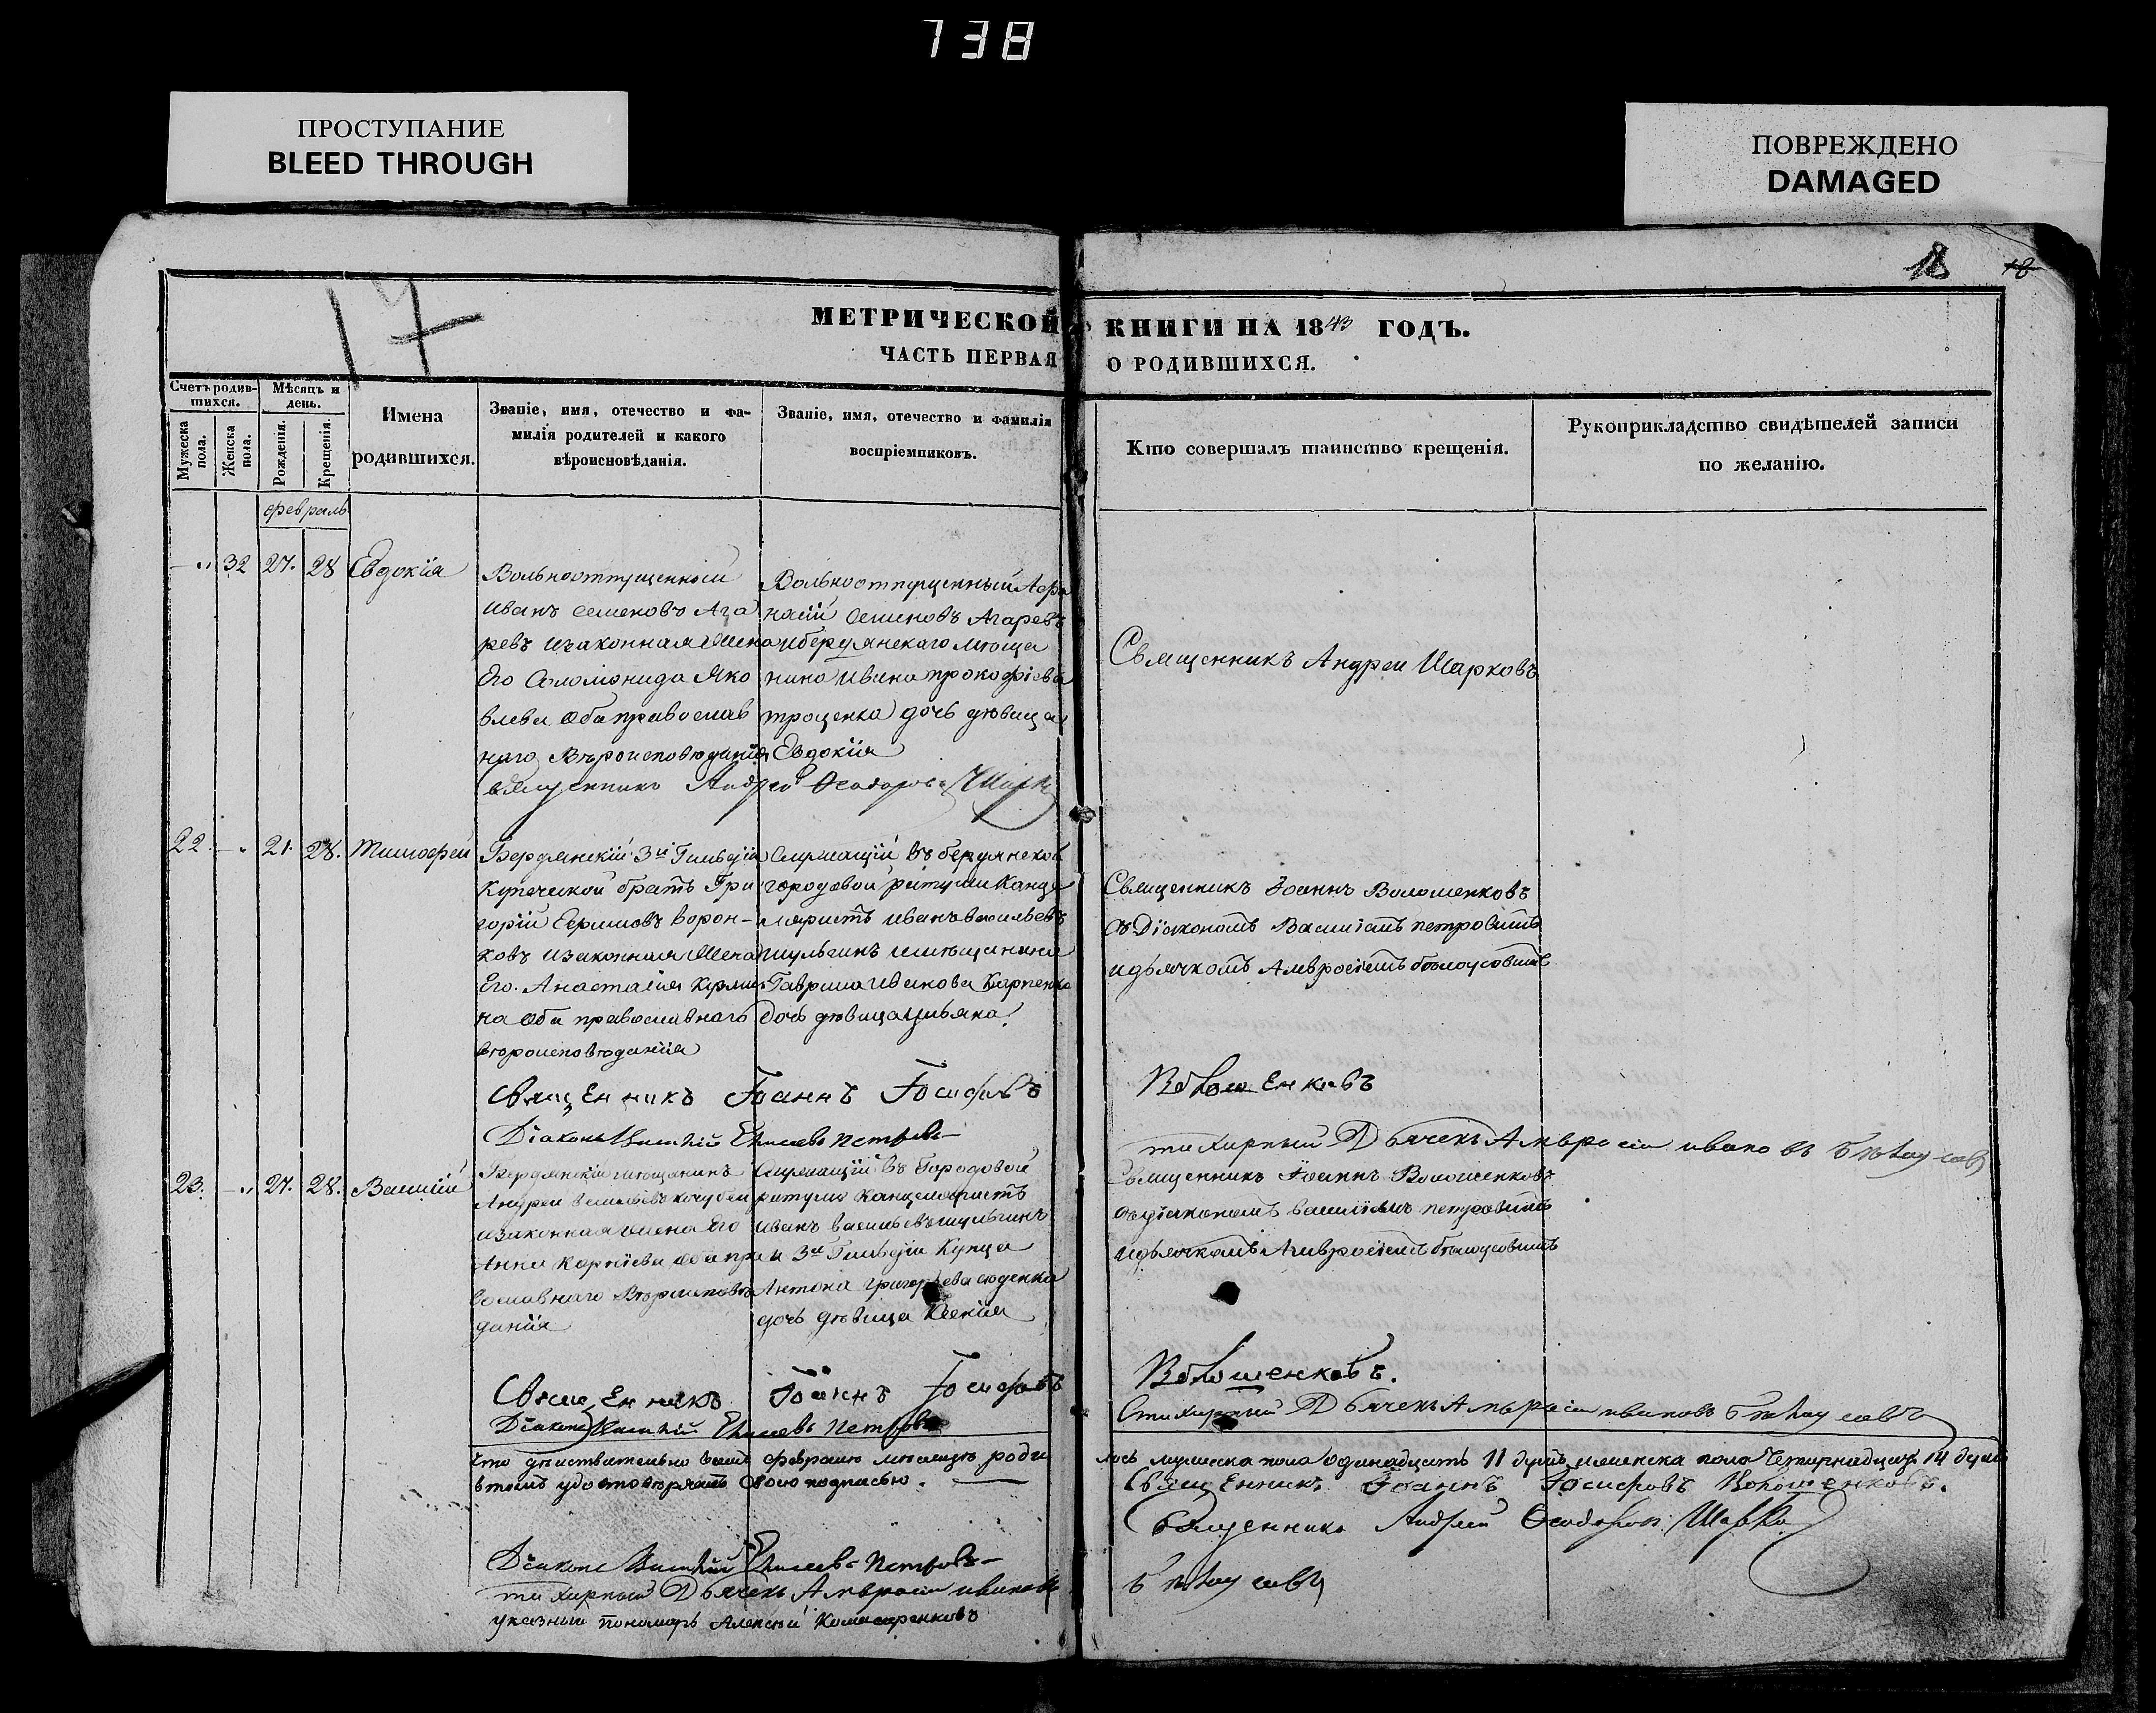 738
ПРОСТУПАНИЕ
BLEED THROUGH
ПОВРЕЖДЕНО
DAMAGED
18 18
17
МЕТРИЧЕСКОЙ КНИГИ НА 1843 ГОДЪ.
ЧАСТЬ ПЕРВАЯ О РОДИВШИХСЯ.
Счетъ родившихся.
Мужеска пола.
Женска пола.
Мѣсяцъ и день.
Рожденія.
Крещенія.
Имена
родившихся.
Званіе, имя, отечество и фа-
милія родителей и какого
вѣроисповѣданія.
Званіе, имя, отечество и фамилія
воспріемниковъ.
Кто совершалъ таинство крещенія.
Рукоприкладство свидѣтелей записи
по желанію.
февраль
32 27. 28 Евдокія
Вольноотпущенный
Иванъ Семеновъ Ага
ревъ изаконная жена
Его Соломонида Яко
влева оба православ
наго Вѣроисповѣданія
Вольноотпущенный Афа
насій Семеновъ Агаревъ
ибердянскаго мѣща
нина Ивана прокофіева
троценка дочь дѣвица
Евдокія
Священникъ Андрей Шарковъ
Священникъ Андрей Ѳеодоровъ Шарк
22. 21. 28. Тимофей
Бердянскій 3й Гильдіи
Купеческой братъ Гри
горій Ефимовъ Ворон-
ковъ изаконная жена
Его Анастасія
на оба православнаго
вѣроисповѣданія
Служащій въ бердянской
городовой ратуши Канце
ляристъ Иванъ васильевъ
шульгинъ имѣщанина
Гаврила Иванова Карпенка
дочь дѣвица Ульяна
Священникъ Іоаннъ Волошенковъ
съ Діакономъ Василіемъ петровымъ
идьячкомъ Амвросіемъ бѣлоусовымъ
Священникъ Іоаннъ Іосифовъ Волошенковъ
Діаконъ Василій Елисеевъ Петровъ
стихарный Дьячекъ Амвросій ивановъ Бѣлоусовъ
23. 27. 28. Василій
Бердянскій мѣщанинъ
Андрей Васильевъ кочубей
изаконная жена Его
Анна Корніева оба пра
вославнаго Вѣроисповѣ
данія
Служащій въ Городовой
ратуши Канцеляристъ
Иванъ васильевъ шульгинъ
и 3й Гильдіи Купца
Антона григорьева
дочь дѣвица Ксенія
Священникъ Іоаннъ Волошенковъ
съ діакономъ василіемъ петровымъ
идьячкомъ Амвросіемъ бѣлоусовымъ
Священникъ Іоаннъ Іосифовъ Волошенковъ.
Діаконъ Василій Елисеевъ Петровъ
Стихарный Дьячекъ Амвросій ивановъ Бѣлоусовъ
Что дѣйствительно всемъ февралѣ мѣсяцѣ роди лось мужеска пола одинадцать 11 душъ женска пола Четырнадцать 14 душъ
втомъ удостовѣряемъ своею подписью. Священникъ Іоаннъ Іосифовъ Волошенковъ.
Священникъ Андрей Ѳеодоровъ Шарко
Діаконъ Василій Елисеевъ Петровъ
стихарный Дьячекъ Амвросій ивановъ Бѣлоусовъ
указный пономарь Алексѣй Комисаренковъ